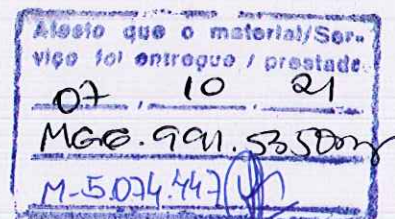 Atesto que o material/Ser-
viço foi entregue / prestado.
07, 10, 21
M-5.074.447